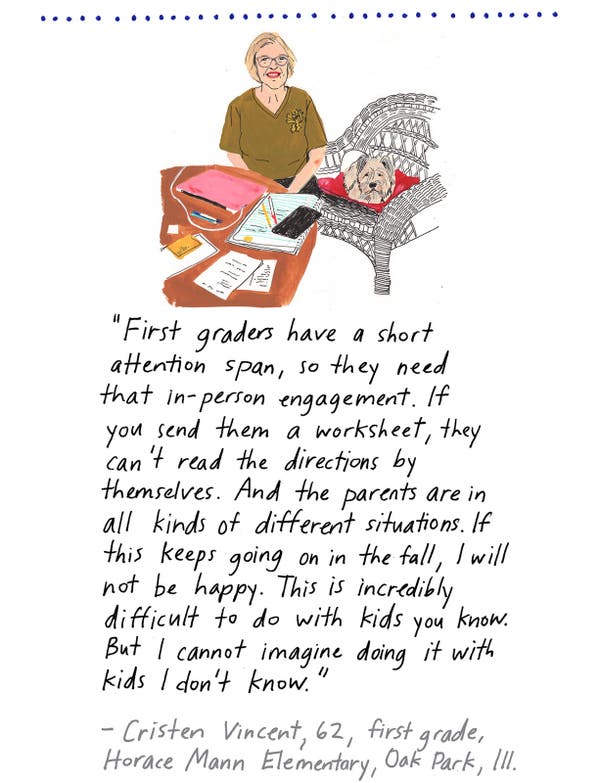 "First graders have a short
attention span, so they need
that in-person engagement. If
you send them a worksheet, they
can't read the directions by
themselves. And the parents are in
all kinds of different situations. If
this keeps going on in the fall, I will
not be happy. This is incredibly
difficult to do with kids you know.
But I cannot imagine doing it with
kids I don't know."
– Cristen Vincent, 62, first grade,
Horace Mann Elementary, Oak Park, Ill.